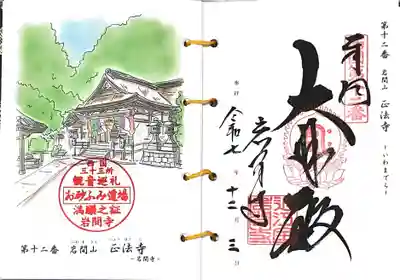 西国
三十三所
観音巡礼
お砂ふみ道場
満願之証
岩間寺
第十二番 岩間山 正法寺
-岩間寺-
第十二番 岩間山 正法寺
-いわまでら-
奉拝
大悲殿
岩間寺
令和七年十二月三日